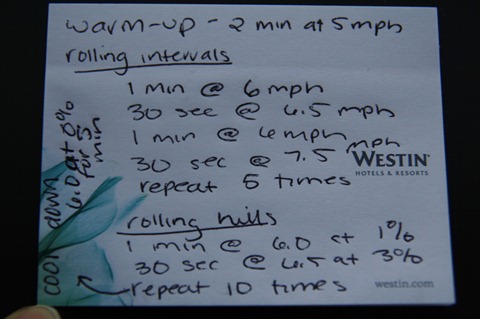 warm-up - 2 min at 5mph
rolling intervals
1 min @ 6 mph
30 sec @ 6.5 mph
1 min @ 6 mph
30 sec @ 7.5 mph
repeat 5 times
WESTIN
HOTELS & RESORTS
rolling hills
1 min @ 6.0 at 1%
30 sec @ 6.5 at 3%
repeat 10 times
cool down
6.0 at 0%
for 5
min
westin.com